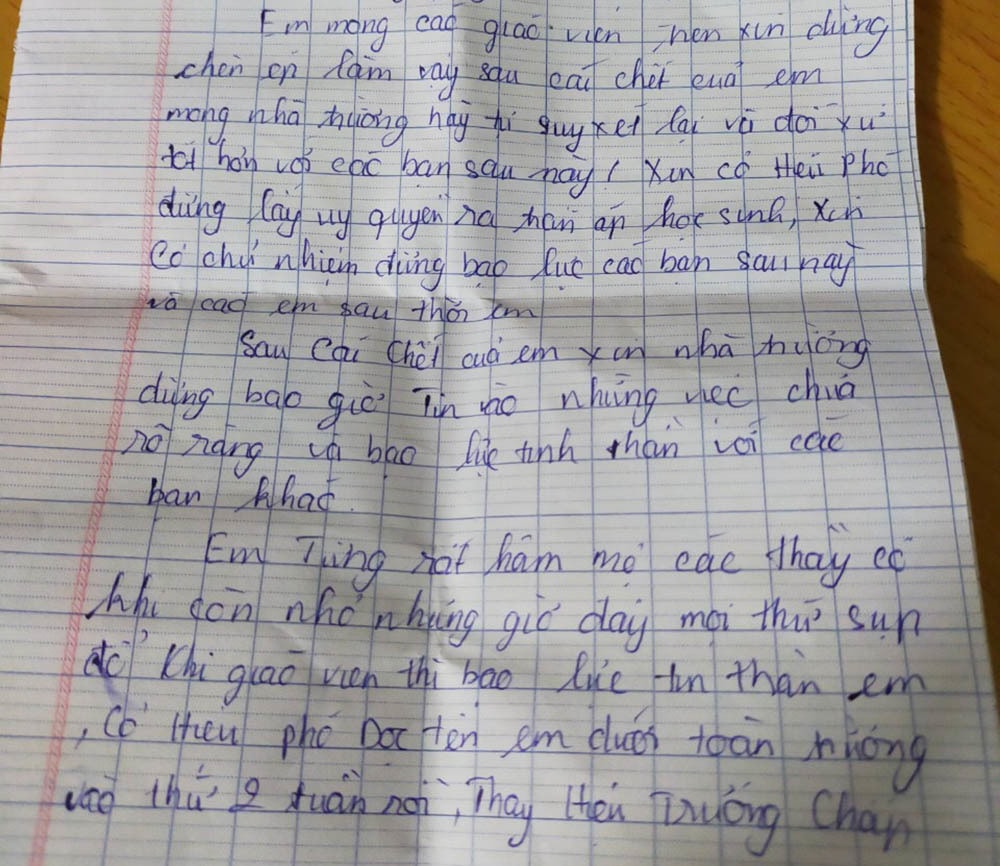 Em mong các giáo viên nên xin đừng
chèn ép lắm vậy sau cái chết của em
mong nhà trường hãy suy xét lại và đối xử
tốt hơn với các bạn sau này! Xin cô Hiệu Phó
đừng lấy uy quyền ra chấn áp học sinh, xin
Cô chủ nhiệm đừng bạo lực các bạn sau này
và các em sau thời em
Sau Cái Chết của em xin nhà trường
đừng bao giờ Tin vào những việc chưa
rõ ràng và bạo lực tinh thần với các
bạn khác.
Em Từng rất hâm mộ các thầy cô
khi còn nhỏ nhưng giờ đây mọi thứ sụp
đổ Khi giáo viên thì bạo lực tin thần em
, Cô Hiệu phó Đọc tên em dưới toàn trường
vào thứ 2 tuần rồi, Thầy Hiệu Trưởng Chấp